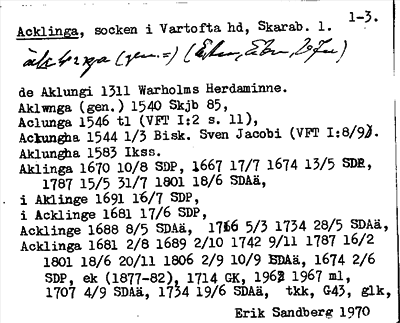 1-3.
Acklinga, socken i Vartofta hd, Skarab. l.
de Aklungi 1311 Warholms Herdaminne.
Aklwnga (gen.) 1540 Skjb 85,
Aclunga 1546 tl (VFT I:2 s. 11),
Acklungha 1544 1/3 Bisk. Sven Jacobi (VFT I:8/9).
Aklungha 1583 Ikss.
Aklinga 1670 10/8 SDP, 1667 17/7 1674 13/5 SDP,
1787 15/5 31/7 1801 18/6 SDAä,
i Aklinge 1691 16/7 SDP,
i Acklinge 1681 17/6 SDP,
Acklinge 1688 8/5 SDAä, 1716 5/3 1734 28/5 SDAä,
Acklinga 1681 2/8 1689 2/10 1742 9/11 1787 16/2
1801 18/6 20/11 1806 2/9 10/9 SDAä, 1674 2/6
SDP, ek (1877-82), 1714 GK, 1962 1967 ml,
1707 4/9 SDAä, 1734 19/6 SDAä, tkk, G43, glk,
Erik Sandberg 1970